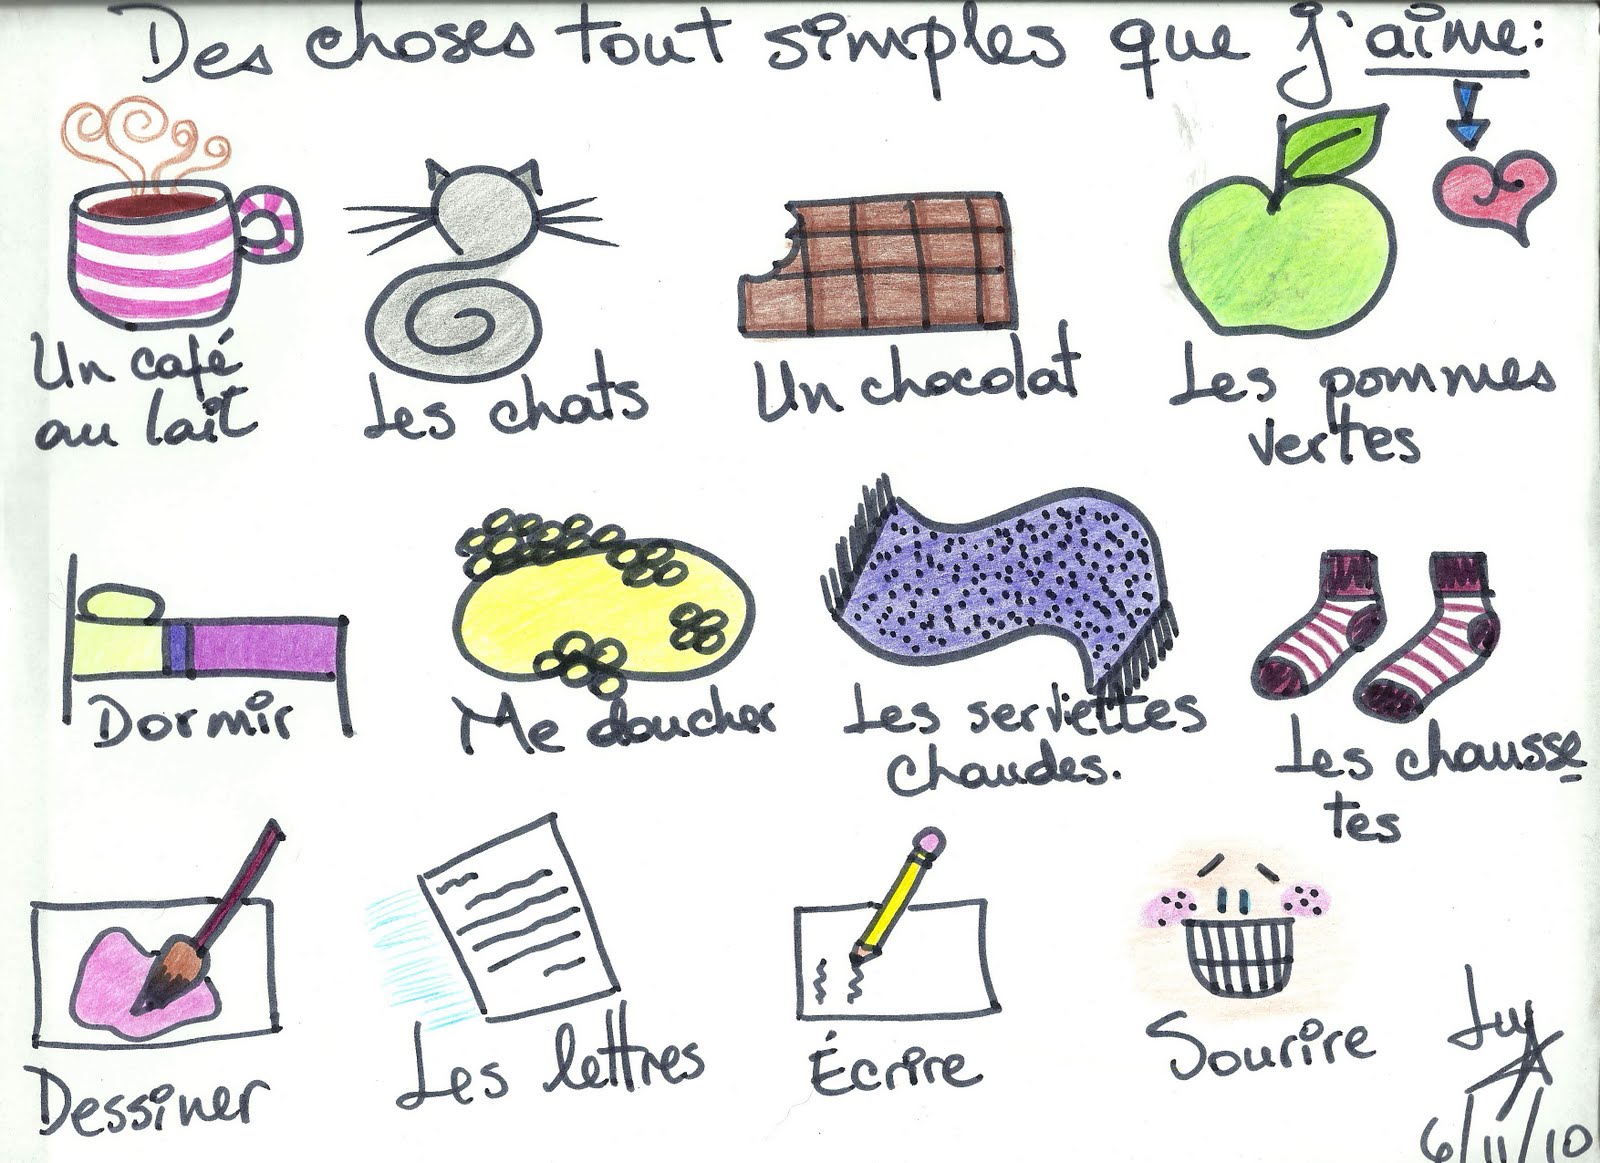 Des choses tout simples que j'aime:
Un café
au lait
Les chats
Un chocolat
Les pommes
vertes
Dormir
Me doucher
Les serviettes
chaudes.
Les chausse
tes
Dessiner
Les lettres
Écrire
Sourire
6/11/10